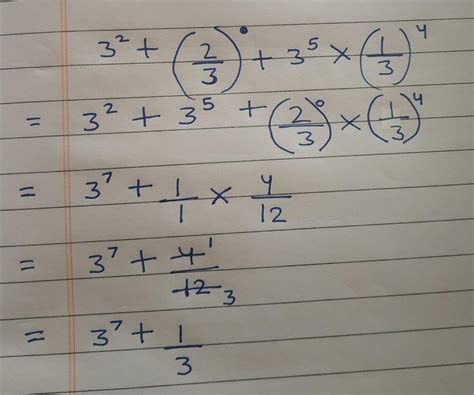 3² + (2/3)⁰ + 3⁵ × (1/3)⁴
= 3² + 3⁵ + (2/3)⁰ × (1/3)⁴
= 3⁷ + 1/1 × 4/12
= 3⁷ + 4̶ 1/1̶2̶ 3
= 3⁷ + 1/3